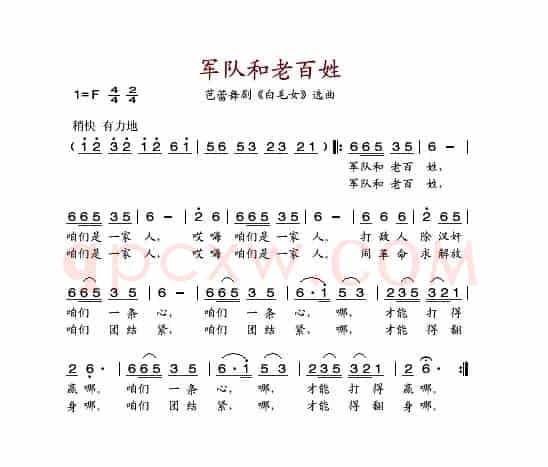 军队和老百姓
1=F 4/4 2/4 芭蕾舞剧《白毛女》选曲
稍快 有力地
( 1 2 3 2 1 2 6 1 | 5 6 5 3 2 3 2 1 ) ‖: 6 6 5 3 5 | 6 – |
军队和 老百 姓,
军队和 老百 姓,
6 6 5 3 5 | 6 – | 2 6 | 6 6 5 3 5 | 6 – | 6 6 5 | 6 2 6 5 |
咱们是 一家 人, 哎 嗨 咱们是 一家 人。 打敌人 除汉奸
咱们是 一家 人, 哎 嗨 咱们是 一家 人。 闹革命 求解放
6 6 5 3 5 | 6 – | 6 6 5 3 5 | 6·1 5 3 | 2 3 5 3 2 1 |
咱们 一条 心, 咱们 一条 心, 哪, 才能 打得
咱们 团结 紧, 咱们 团结 紧, 哪, 才能 得翻
2 6· | 6 6 5 3 5 | 6·1 5 3 | 2 3 5 3 2 1 | 2 6· :‖
赢哪, 咱们 一条 心, 哪, 才能 打得 赢哪。
身哪, 咱们 团结 紧, 哪, 才能 得翻 身哪。
qpcxw.com